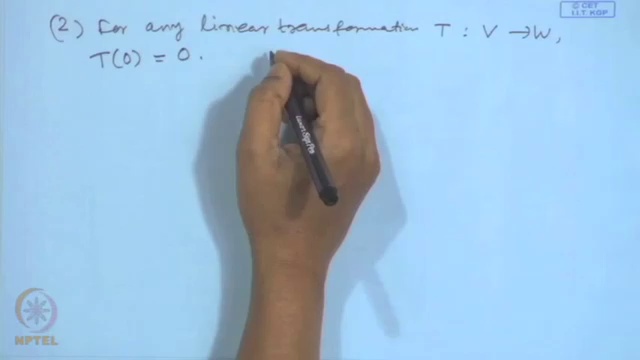 © CET
I.I.T. KGP
(2) For any linear transformation T : V → W,
T(0) = 0.
NPTEL